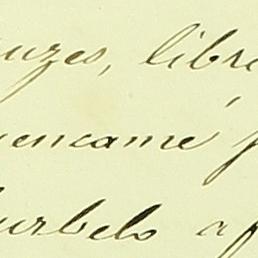 uzes, libre
uencamé
urbelo a